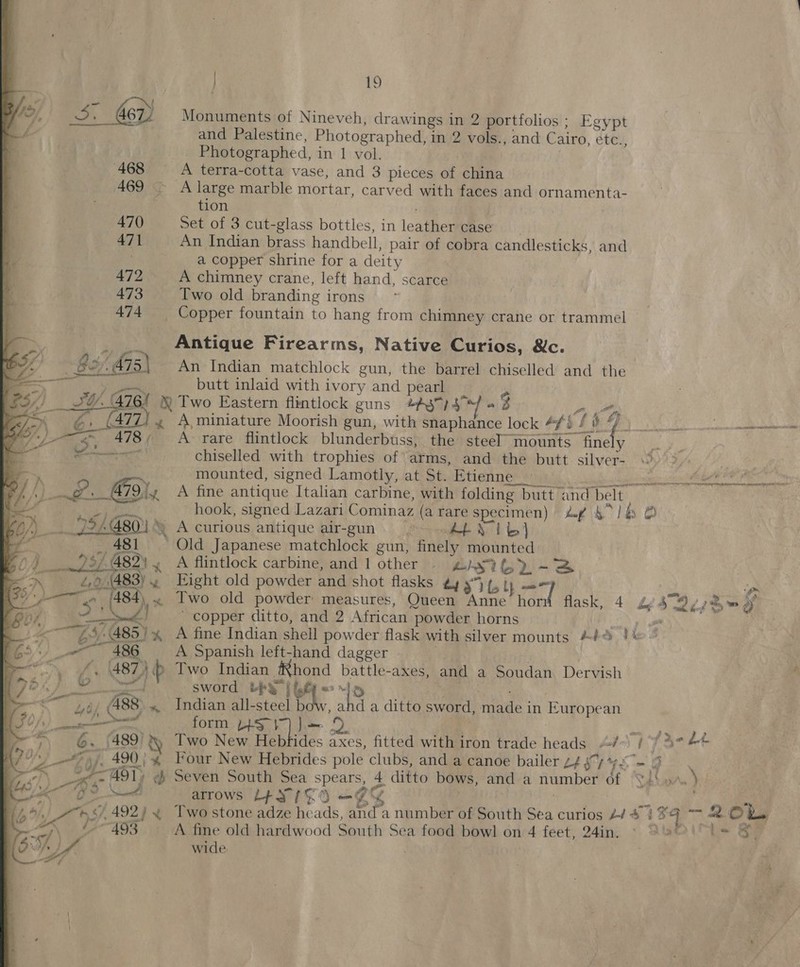 19
467 Monuments of Nineveh, drawings in 2 portfolios ; Egypt
and Palestine, Photographed, in 2 vols., and Cairo, etc.,
Photographed, in 1 vol.
468 A terra-cotta vase, and 3 pieces of china
469 A large marble mortar, carved with faces and ornamenta-
tion
470 Set of 3 cut-glass bottles, in leather case
471 An Indian brass handbell, pair of cobra candlesticks, and
a copper shrine for a deity
472 A chimney crane, left hand, scarce
473 Two old branding irons
474 Copper fountain to hang from chimney crane or trammel
Antique Firearms, Native Curios, &c.
475 An Indian matchlock gun, the barrel chiselled and the
butt inlaid with ivory and pearl
476 Two Eastern flintlock guns
477 A miniature Moorish gun, with snaphance lock
478 A rare flintlock blunderbuss, the steel mounts finely
chiselled with trophies of arms, and the butt silver-
mounted, signed Lamotly, at St. Etienne
479 A fine antique Italian carbine, with folding butt and belt
hook, signed Lazari Cominaz (a rare specimen)
480 A curious antique air-gun
481 Old Japanese matchlock gun, finely mounted
482 A flintlock carbine, and 1 other
483 Eight old powder and shot flasks
484 Two old powder measures, Queen Anne horn flask, 4
copper ditto, and 2 African powder horns
485 A fine Indian shell powder flask with silver mounts
486 A Spanish left-hand dagger
487 Two Indian Khond battle-axes, and a Soudan Dervish
sword
488 Indian all-steel bow, and a ditto sword, made in European
form
489 Two New Hebrides axes, fitted with iron trade heads
490 Four New Hebrides pole clubs, and a canoe bailer
491 Seven South Sea spears, 4 ditto bows, and a number of
arrows
492 Two stone adze heads, and a number of South Sea curios
493 A fine old hardwood South Sea food bowl on 4 feet, 24in.
wide